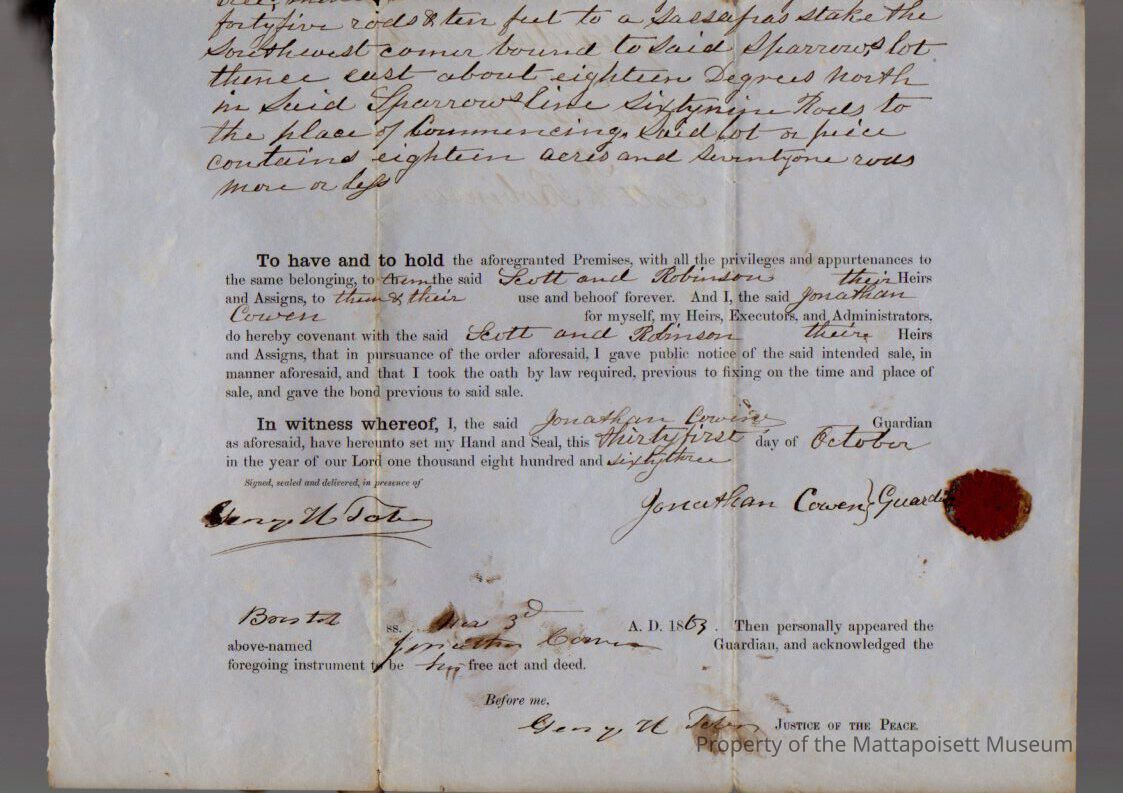 fortyfive rods & ten feet to a Sassafras stake the
Southwest corner bound to said Sparrow,s lot
thence east about eighteen Degrees north
in Said Sparrows line sixtynine Rods to
the place of Commencing, said lot or peice
contains eighteen acres and seventyone rods
more or less
To have and to hold the aforegranted Premises, with all the privileges and appurtenances to
the same belonging, to them the said Scott and Robinson their Heirs
and Assigns, to them & their use and behoof forever. And I, the said Jonathan
Cowen for myself, my Heirs, Executors, and Administrators,
do hereby covenant with the said Scott and Robinson their Heirs
and Assigns, that in pursuance of the order aforesaid, I gave public notice of the said intended sale, in
manner aforesaid, and that I took the oath by law required, previous to fixing on the time and place of
sale, and gave the bond previous to said sale.
In witness whereof, I, the said Jonathan Cowen Guardian
as aforesaid, have hereunto set my Hand and Seal, this thirtyfirst day of October
in the year of our Lord one thousand eight hundred and sixtythree
Signed, sealed and delivered, in presence of
George H Tober
Jonathan Cowen } Guardi
Bristol ss. 3d A. D. 1863. Then personally appeared the
above-named Jonathan Cowen Guardian, and acknowledged the
foregoing instrument to be his free act and deed.
Before me,
George H Tober JUSTICE OF THE PEACE.
Property of the Mattapoisett Museum